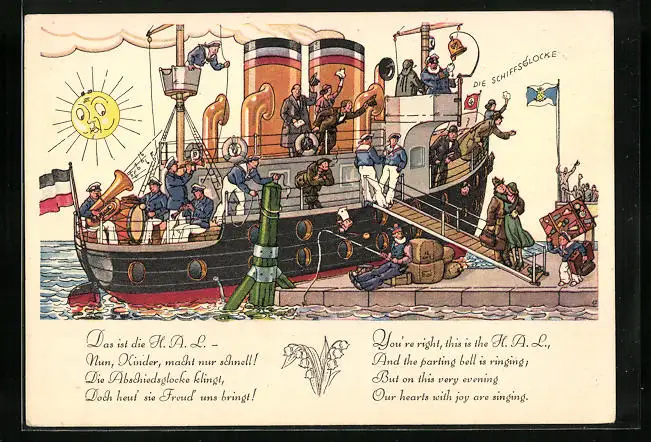 DIE SCHIFFSGLOCKE
Das ist die H. A. L. –
Nun, Kinder, macht nur schnell!
Die Abschiedsglocke klingt,
Doch heut' sie Freud' uns bringt!
You're right, this is the H. A. L.,
And the parting bell is ringing;
But on this very evening
Our hearts with joy are singing.